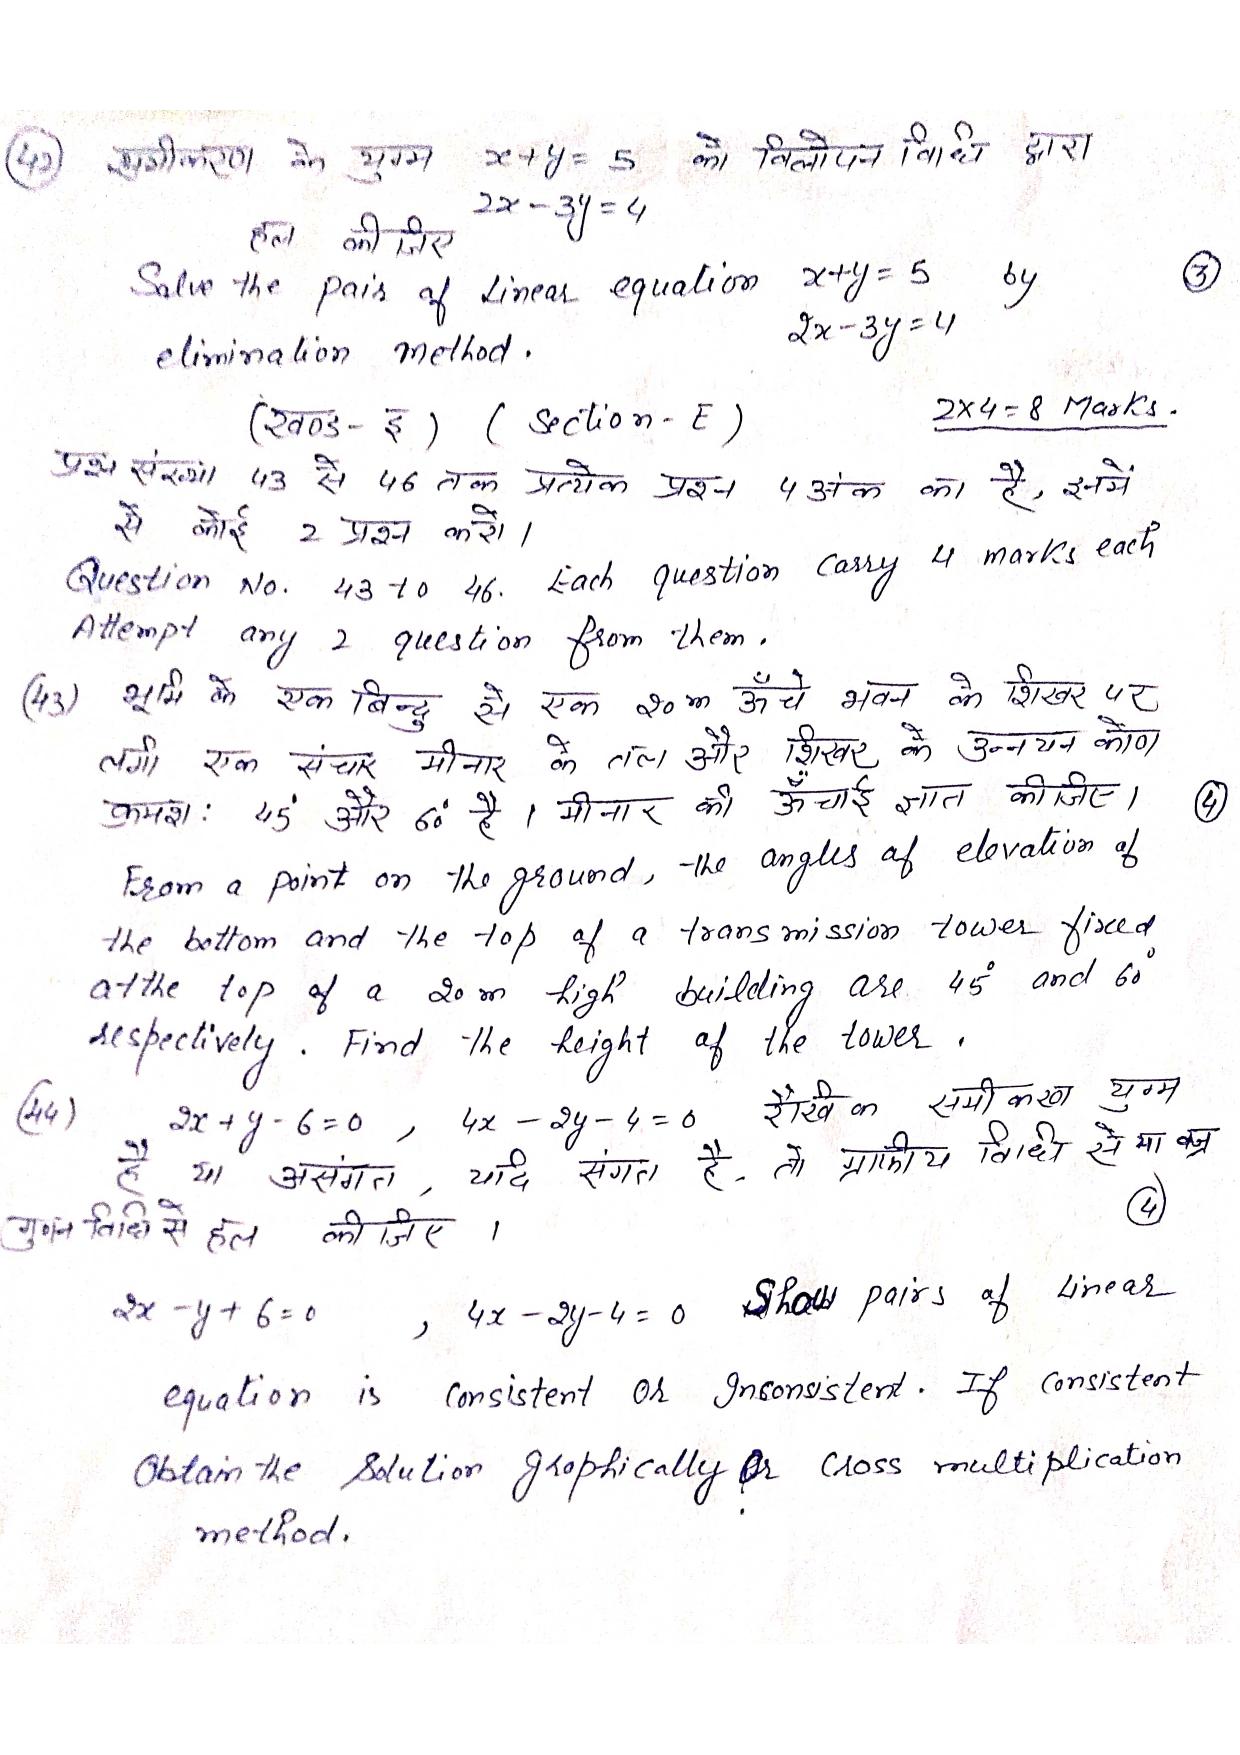 (42) समीकरण के युग्म x+y=5 को विलोपन विधि द्वारा
2x-3y=4
हल कीजिए
Solve the pair of Linear equation x+y=5 by (3)
2x-3y=4
elimination method.
(खण्ड-इ) (Section-E) 2x4=8 Marks.
प्रश्न संख्या 43 से 46 तक प्रत्येक प्रश्न 4 अंक का है, इनमें
से कोई 2 प्रश्न करो।
Question No. 43 to 46. Each question carry 4 marks each
Attempt any 2 question from them.
(43) भूमि के एक बिन्दु से एक 20m ऊँचे भवन के शिखर पर
लगी एक संचार मीनार के तल और शिखर के उन्नयन कोण
क्रमश: 45° और 60° है। मीनार की ऊँचाई ज्ञात कीजिए। (4)
From a point on the ground, the angles of elevation of
the bottom and the top of a transmission tower fixed
at the top of a 20m high building are 45° and 60°
respectively. Find the height of the tower.
(44) 2x+y-6=0, 4x-2y-4=0 रैखिक समीकरण युग्म
है या असंगत, यदि संगत है- तो ग्राफीय विधि से या वज्र
(4)
गुणन विधि से हल कीजिए।
2x-y+6=0, 4x-2y-4=0 Show pairs of Linear
equation is Consistent or Inconsistent. If Consistent
Obtain the Solution graphically or Cross multiplication
method.